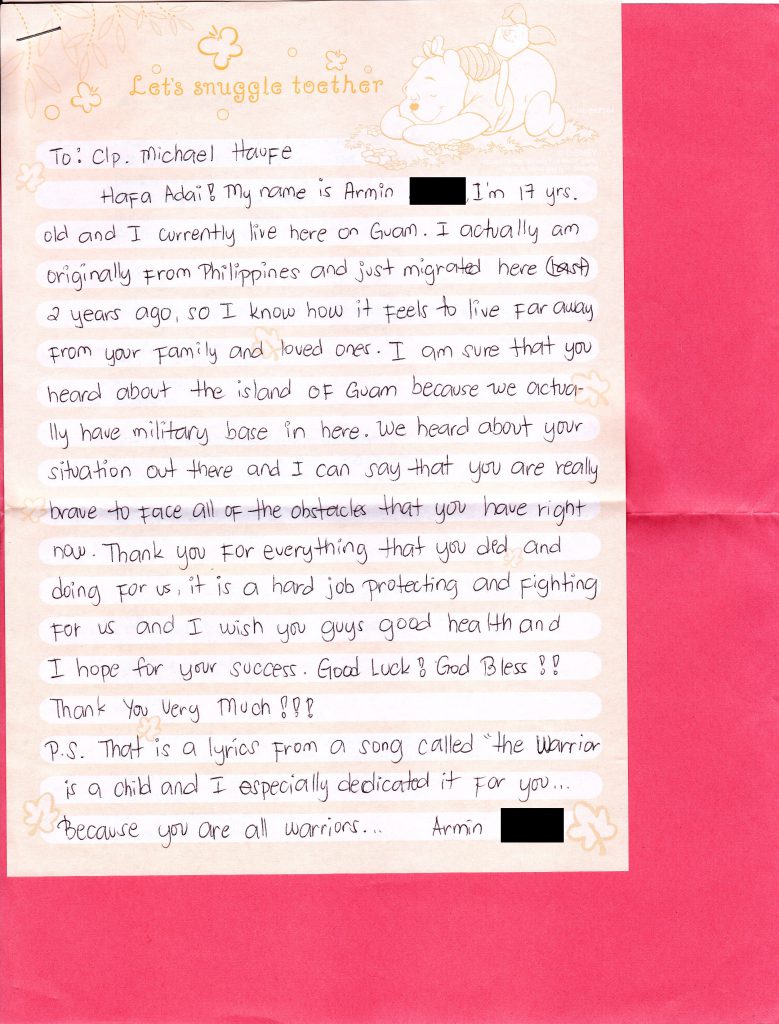 Let's snuggle toether
To: Clp. Michael Haufe
Hafa Adai! My name is Armin , I'm 17 yrs.
old and I currently live here on Guam. I actually am
originally from Philippines and just migrated here
2 years ago, so I know how it feels to live far away
from your family and loved ones. I am sure that you
heard about the island of Guam because we actua-
lly have military base in here. We heard about your
situation out there and I can say that you are really
brave to face all of the obstacles that you have right
now. Thank you for everything that you did and
doing for us, it is a hard job protecting and fighting
for us and I wish you guys good health and
I hope for your success. Good Luck! God Bless!!
Thank You Very Much!!!
P.S. That is a lyrics from a song called "the Warrior
is a child and I especially dedicated it for you...
Because you are all warriors... Armin